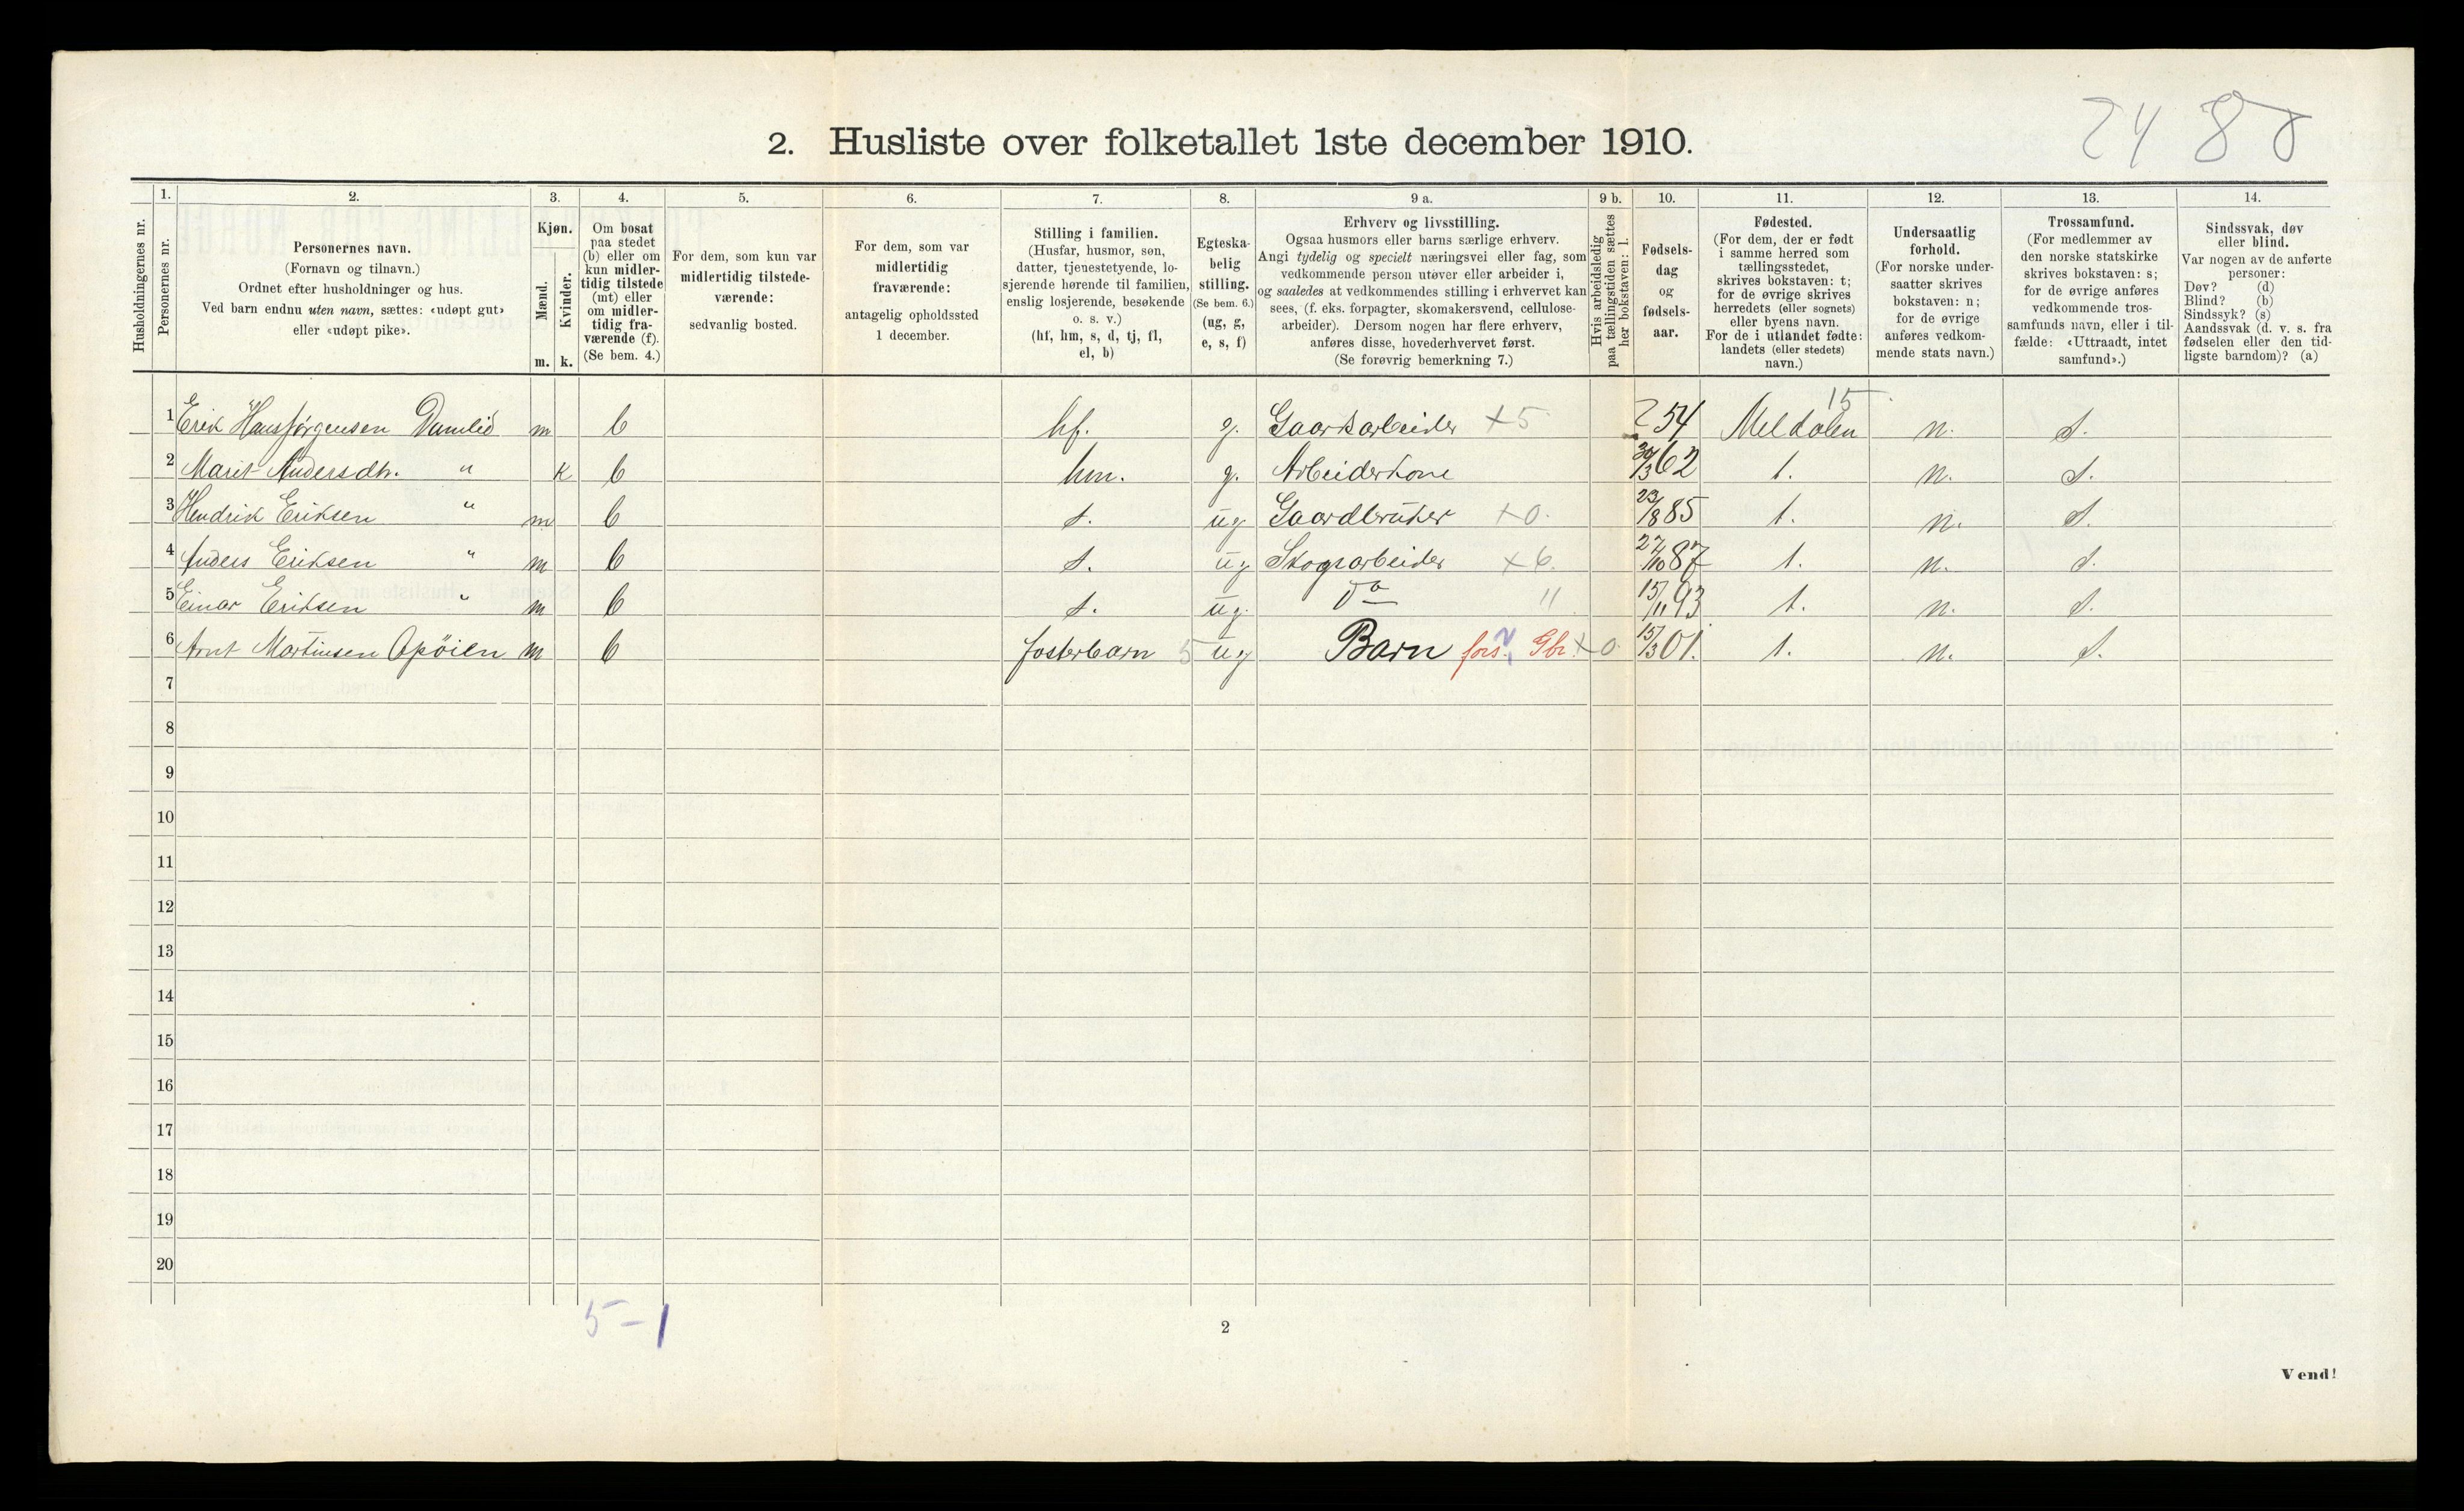 24 88
2. Husliste over folketallet 1ste december 1910.
Husholdningernes nr.
1.
Personernes nr.
2.
Personernes navn.
(Fornavn og tilnavn.)
Ordnet efter husholdninger og hus.
Ved barn endnu uten navn, sættes: «udøpt gut»
eller «udøpt pike».
3.
Kjøn.
Mænd.
Kvinder.
m. k.
4.
Om bosat
paa stedet
(b) eller om
kun midler-
tidig tilstede
(mt) eller
om midler-
tidig fra-
værende (f).
(Se bem. 4.)
5.
For dem, som kun var
midlertidig tilstede-
værende:
sedvanlig bosted.
6.
For dem, som var
midlertidig
fraværende:
antagelig opholdssted
1 december.
7.
Stilling i familien.
(Husfar, husmor, søn,
datter, tjenestetyende, lo-
sjerende hørende til familien,
enslig losjerende, besøkende
o. s. v.)
(hf, hm, s, d, tj, fl,
el, b)
8.
Egteska-
belig
stilling.
(Se bem. 6.)
(ug, g,
e, s, f)
9 a.
Erhverv og livsstilling.
Ogsaa husmors eller barns særlige erhverv.
Angi tydelig og specielt næringsvei eller fag, som
vedkommende person utøver eller arbeider i,
og saaledes at vedkommendes stilling i erhvervet kan
sees, (f. eks. forpagter, skomakersvend, cellulose-
arbeider). Dersom nogen har flere erhverv,
anføres disse, hovederhvervet først.
(Se forøvrig bemerkning 7.)
9 b.
Hvis arbeidsledig
paa tællingstiden sættes
her bokstaven: l.
10.
Fødsels-
dag
og
fødsels-
aar.
11.
Fødested.
(For dem, der er født
i samme herred som
tællingsstedet,
skrives bokstaven: t;
for de øvrige skrives
herredets (eller sognets)
eller byens navn.
For de i utlandet fødte:
landets (eller stedets)
navn.)
12.
Undersaatlig
forhold.
(For norske under-
saatter skrives
bokstaven: n;
for de øvrige
anføres vedkom-
mende stats navn.)
13.
Trossamfund.
(For medlemmer av
den norske statskirke
skrives bokstaven: s;
for de øvrige anføres
vedkommende tros-
samfunds navn, eller i til-
fælde: «Uttraadt, intet
samfund».)
14.
Sindssvak, døv
eller blind.
Var nogen av de anførte
personer:
Døv? (d)
Blind? (b)
Sindssyk? (s)
Aandssvak (d. v. s. fra
fødselen eller den tid-
ligste barndom)? (a)
15
1 Erik Hansjørgensen Damlid m b hf. g. Gaardsarbeider +5 54 Meldalen n. s.
2 Marit Andersdtr. " k b hm. g. Arbeiderkone 30/3 62 t. n. s.
3 Hendrik Eriksen " m b s. ug Gaardbruker +0. 23/8 85 t. n. s.
4 Anders Eriksen " m b s. ug Skogsarbeider +6. 27/10 87 t. n. s.
5 Einar Eriksen " m b s. ug. do " 15/11 93 t. n. s.
6 Arnt Martinsen Opøien m b fosterbarn 5 ug Barn fors. Gbr. +0. 15/3 01. t. n. s.
7
8
9
10
11
12
13
14
15
16
17
18
19
20
5 - 1
2
Vend!